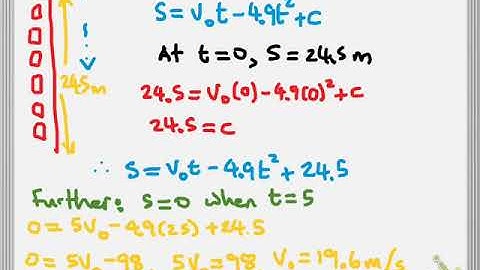 S=V₀t-4.9t²+C
At t=0, S=24.5m
24.5m
24.5=V₀(0)-4.9(0)²+C
24.5=C
∴ S=V₀t-4.9t²+24.5
Further: S=0 when t=5
0=5V₀-4.9(25)+24.5
0=5V₀-98, 5V₀=98, V₀=19.6m/s